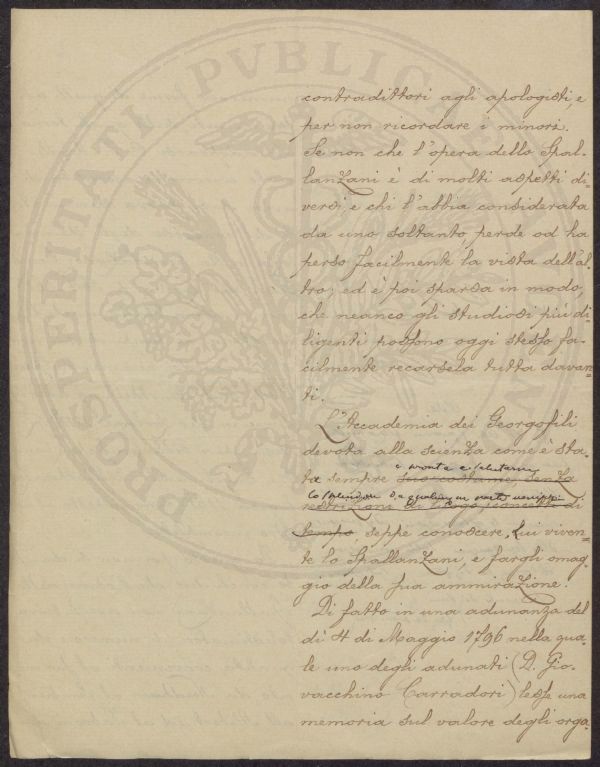 PROSPERITATI PVBLICA
contradittori agli apologisti, e
per non ricordare i minori.
Se non che l'opera dello Spal-
lanzani è di molti aspetti di-
versi, e chi l'abbia considerata
da uno soltanto, perde od ha
perso facilmente la vista dell'al-
tro; ed è poi sparsa in modo,
che neanco gli studiosi più di-
ligenti possono oggi stesso fa-
cilmente recarsela tutta davan-
ti.
L'Accademia dei Georgofili
devota alla scienza come è sta-
e pronta a salutarne
ta sempre suo costume, senza
lo splendore da qualunque parte
restrizione di luogo di
tempo, seppe conoscere, Lui viven-
te lo Spallanzani, e fargli omag-
gio della sua ammirazione.
Di fatto in una adunanza del
dì 4 di Maggio 1796 nella qua-
le uno degli adunati (D. Gio-
vacchino Carradori) lesse una
memoria sul valore degli orga-